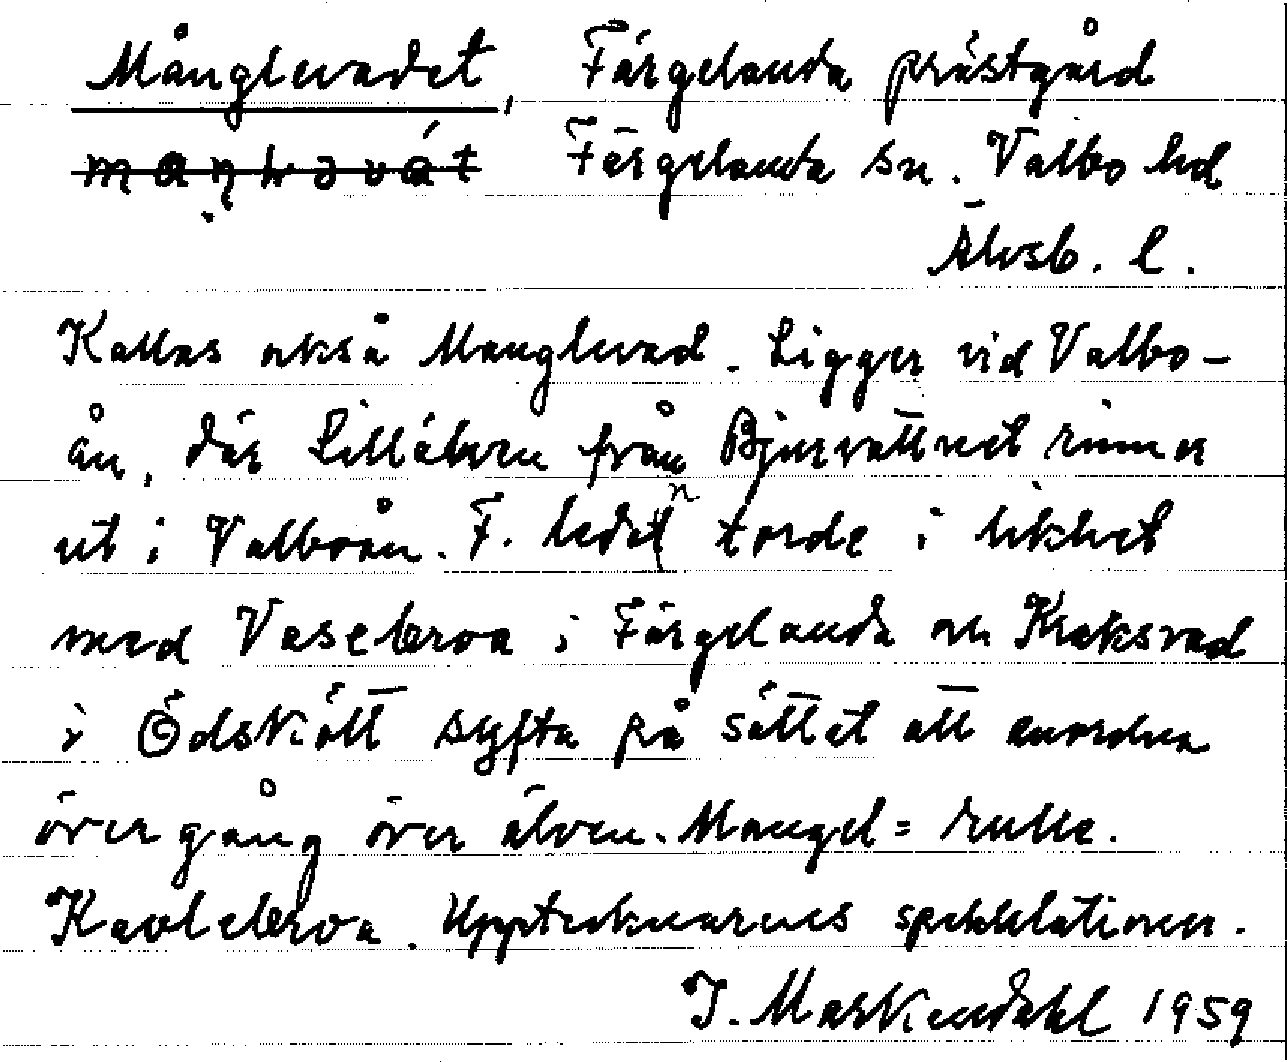 Månglevadet, Färgelanda prästgård
Färgelanda sn. Valbo hd
Älvsb. l.
Kallas också Manglevad. Ligger vid Valbo-
ån, där Lillälven från Bjursvattnet rinner
ut i Valboån. F. leden torde i likhet
med Vasebroa i Färgelanda och Kraksvad
i Ödskölt syfta på sättet att anordna
övergång över älven. Mangel = rulle.
Kavlebroa. Upptecknarnes spekulationer.
J. Markendahl 1959